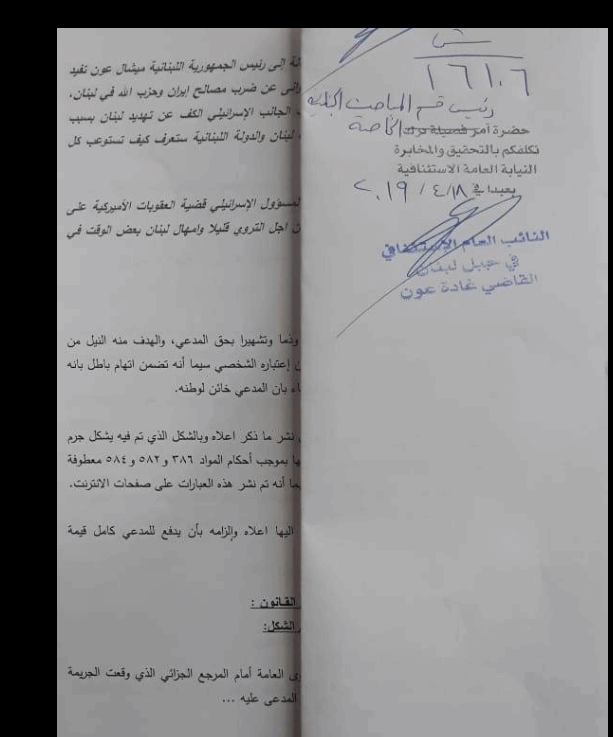 ش
١٦١٠٦
رئيس قسم المباحث الجنائية
الخاصة
حضرة آمر فصيلة درك
نكلفكم بالتحقيق والمخابرة
النيابة العامة الاستئنافية
بعبدا في ١٨/٤/٢٠١٩
النائب العام الإستئنافي
في جبل لبنان
القاضي غادة عون
إلى رئيس الجمهورية اللبنانية ميشال عون تفيد
عن ضرب مصالح إيران وحزب الله في لبنان،
الجانب الإسرائيلي الكف عن تهديد لبنان بسبب
لبنان والدولة اللبنانية ستعرف كيف تستوعب كل
لمسؤول الإسرائيلي قضية العقوبات الأميركية على
اجل التروي قليلا وامهال لبنان بعض الوقت في
وذما وتشهيرا بحق المدعي، والهدف منه النيل من
إعتباره الشخصي سيما أنه تضمن اتهام باطل بانه
بان المدعي خائن لوطنه.
نشر ما ذكر اعلاه وبالشكل الذي تم فيه يشكل جرم
بموجب أحكام المواد ٣٨٦ و ٥٨٢ و ٥٨٤ معطوفة
أنه تم نشر هذه العبارات على صفحات الانترنت.
اليها اعلاه وإلزامه بأن يدفع للمدعي كامل قيمة
القانون :
الشكل:
العامة أمام المرجع الجزائي الذي وقعت الجريمة
المدعى عليه ...